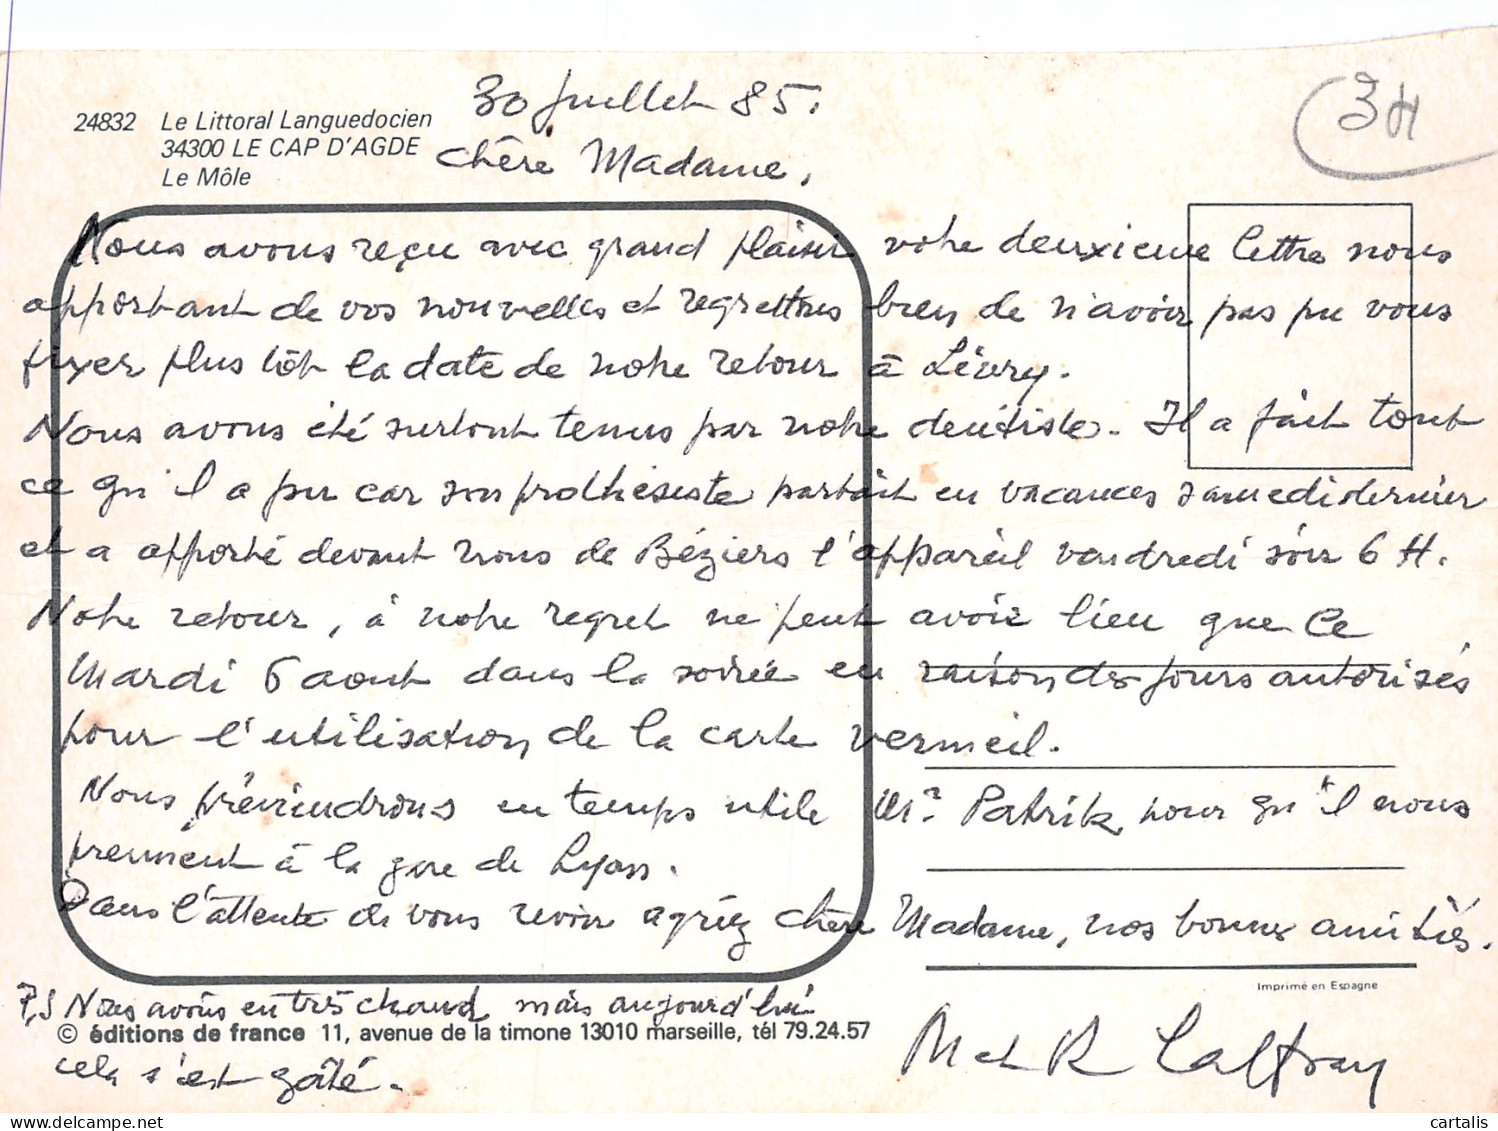 30 juillet 85.
3H
24832 Le Littoral Languedocien
34300 LE CAP D'AGDE
Le Môle
Chère Madame,
Nous avons reçu avec grand plaisir votre deuxième lettre nous
apportant de vos nouvelles et regrettons bien de n'avoir pas pu vous
fixer plus tôt la date de notre retour à Livry.
Nous avons été surtout tenus par notre dentiste. Il a fait tout
ce qu'il a pu car son prothésiste partait en vacances samedi dernier
et a apporté devant nous de Béziers l'appareil vendredi soir 6 H.
Notre retour, à notre regret ne peut avoir lieu que le
Mardi 6 aout dans la soirée en raison des jours autorisés
pour l'utilisation de la carte vermeil.
Nous préviendrons en temps utile Mr. Patrik pour qu'il nous
prennent à la gare de Lyon.
Dans l'attente de vous revoir agréez chère Madame, nos bonnes amitiés.
Imprimé en Espagne
P.S Nous avons eu très chaud mais aujourd'hui
© éditions de france 11, avenue de la timone 13010 marseille, tél 79.24.57
cela s'est gâté.
M et R
cartalis